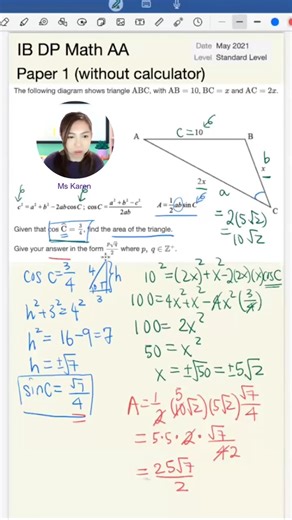 IB DP Math AA
Paper 1 (without calculator)
Date May 2021
Level Standard Level
The following diagram shows triangle ABC, with AB = 10, BC = x and AC = 2x.
A
C = 10
B
b
x
2x
a
C
= 2(5√2)
= 10√2
Ms Karen
c² = a² + b² − 2ab cos C ; cos C = (a² + b² − c²)/2ab
A = 1/2 ab sin C
Given that cos C = 3/4, find the area of the triangle.
Give your answer in the form p√q/2 where p, q ∈ ℤ⁺.
cos C = 3/4
4
h
3
h² + 3² = 4²
h² = 16 − 9 = 7
h = ±√7
sin C = √7/4
10² = (2x)² + x² − 2(2x)(x)cos C
100 = 4x² + x² − 4x²(3/4)
100 = 2x²
50 = x²
x = ±√50 = ±5√2
A = 1/2 (10√2)(5√2) √7/4
5
= 5·5·2·√7/4 2
= 25√7/2